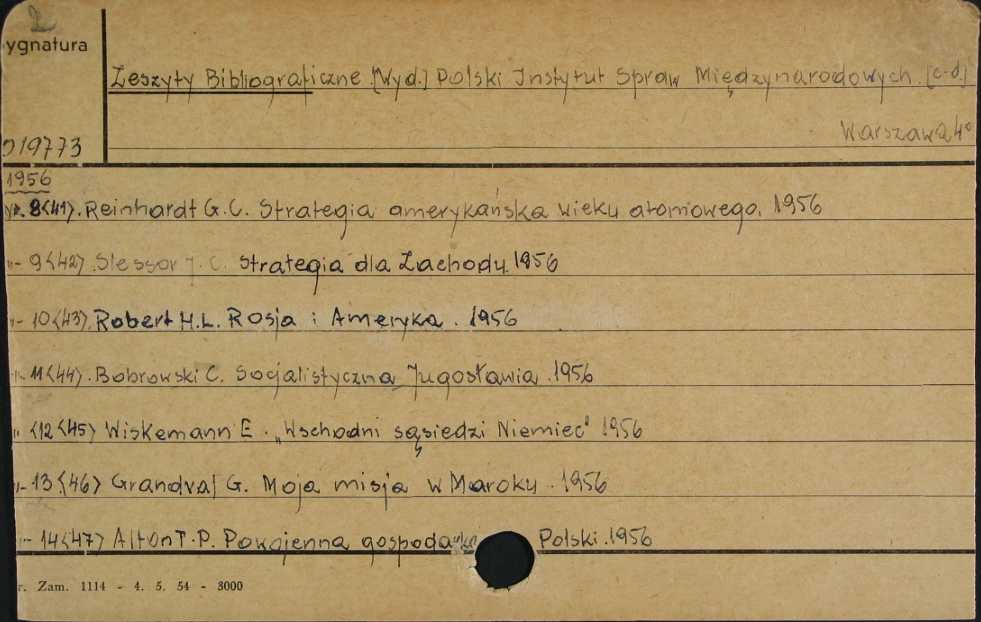 2
ygnatura
Zeszyty Bibliograficzne [Wyd.] Polski Instytut Spraw Międzynarodowych. [c-d]
Warszawa 4°
019773
1956
Nr. 8<41>. Reinhardt G.C. Strategia amerykańska wieku atomowego. 1956
"- 9<42> Slessor J. C. Strategia dla Zachodu 1956
"- 10<43> Robert H.L. Rosja i Ameryka. 1956
"- 11<44>. Bobrowski C. Socjalistyczna Jugosławia. 1956
"- <12<45> Wiskemann E. „Wschodni sąsiedzi Niemiec" 1956
"- 13<46> Grandval G. Moja misja w Maroku. 1956
"- 14<47> Alton T.P. Powojenna gospodarka Polski. 1956
r. Zam. 1114 - 4. 5. 54 - 3000